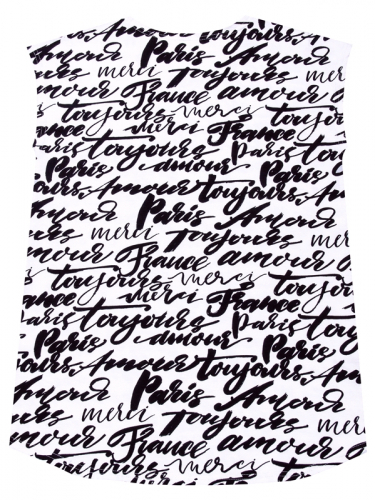 Amour Paris toujours Amour
Toujours merci Toujours
amour France amour
toujours merci France
Paris toujours Paris toujours
Paris amour Paris
Toujours, Amour Toujours, Amour
Amour Paris Amour
merci Toujours merci
amour France amour
toujours merci toujours
merci France
Paris toujours Paris toujours
Paris amour Paris
Amour Toujours, Amour
Amour Paris Amour
merci Toujours merci
amour France amour
toujours merci